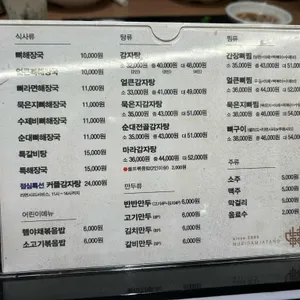 식사류
뼈해장국 10,000원
얼큰뼈해장국 10,000원
뼈라면해장국 11,000원
묵은지뼈해장국 11,000원
수제비뼈해장국 11,000원
순대뼈해장국 11,000원
특갈비탕 15,000원
특해장국 15,000원
점심특선 커플감자탕 24,000원
어린이메뉴
햄야채볶음밥 6,000원
소고기볶음밥 6,000원
탕류
감자탕
소 32,000원 중 40,000원 대 48,000원
얼큰감자탕
소 33,000원 중 41,000원 대 49,000원
묵은지감자탕
소 35,000원 중 43,000원 대 51,000원
순대전골감자탕
소 35,000원 중 43,000원 대 51,000원
마라감자탕
소 36,000원 중 44,000원 대 52,000원
2,000원
만두류
반반만두 6,000원
고기만두 6,000원
김치만두 6,000원
갈비만두 6,000원
찜류
간장뼈찜
소 35,000원 중 43,000원 대 51,000원
얼큰뼈찜
소 36,000원 중 44,000원 대 52,000원
묵은지뼈찜
소 38,000원
뼈구이
소 38,000원
주류
소주 5,000원
맥주 5,000원
막걸리 5,000원
음료수 2,000원